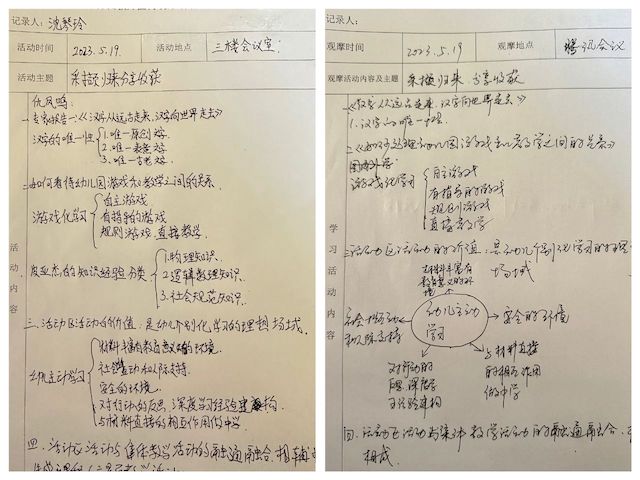 记录人：沈琴玲
活动时间 2023.5.19. 活动地点 三楼会议室
活动主题 采撷归来分享收获
仇凤鸣：
一、专家报告一：《汉字从远古走来，汉字向世界走去》
汉字的唯一性
1.唯一原创文字
2.唯一表意文字
3.唯一古老文字
二、如何看待幼儿园游戏和教学之间的关系
游戏化学习
自主游戏
有指导的游戏
规则游戏 直接教学
皮亚杰的知识经验分类
1.物理知识
2.逻辑数理知识
3.社会规范知识
三、活动区活动的价值：是幼儿个别化学习的理想场域
幼儿主动学习
材料丰富有教育意义的环境
社会性互动和人际支持
安全的环境
对行动的反思 深度学习经验建构
与材料直接的相互作用做中学
四、活动区活动与集体教学活动的融通融合，相辅
活动内容
记录人：
观摩时间 2023.5.19 观摩地点 腾讯会议
观摩活动内容及主题 采撷归来 分享收获
《汉字从远古走来，汉字向世界走去》
1.汉字的唯一性
2.《如何处理幼儿园游戏和教学之间的关系》
游戏化学习
自主游戏
有指导的游戏
规则游戏
直接教学
三、活动区活动的价值：是幼儿个别化学习的理想
场域
材料丰富有
教育意义的环
境
社会性互动
和人际支持
幼儿主动
学习
安全的环境
对行动的
反思 深度学
习经验建构
与材料直接
的相互作用
做中学
四、活动区活动与集体教学活动的融通融合，
相成
学习活动内容